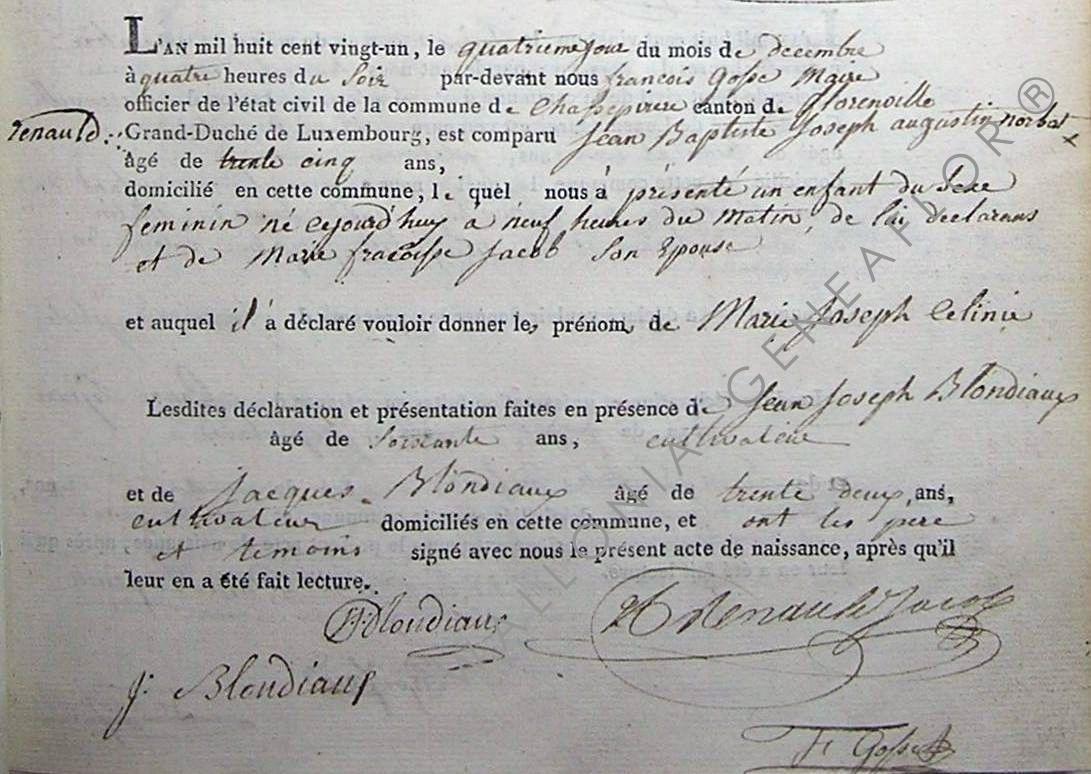 L'AN mil huit cent vingt-un, le quatrieme jour du mois de decembre
à quatre heures du soir par-devant nous francois Gosse Maire
officier de l'état civil de la commune de Chassepierre canton de florenville
renauld : Grand-Duché de Luxembourg, est comparu Jean Baptiste Joseph augustin norbat x
âgé de trente cinq ans,
domicilié en cette commune, le quel nous à présenté un enfant du sexe
feminin né cejourd'huy a neuf heures du matin, de lui declarans
et de Marie fracoisse Jacob son Epouse
et auquel il a déclaré vouloir donner les prénom de Marie Joseph Celinie
Lesdites déclaration et présentation faites en présence de Jean Joseph Blondiaux
âgé de soixante ans, cultivateur
et de Jacques Blondiaux âgé de trente deux ans,
cultivateur domiciliés en cette commune, et ont les père
et temoins signé avec nous le présent acte de naissance, après qu'il
leur en a été fait lecture.
Blondiaux renauld Jacob
J. Blondiaux
F Gosse
GENEAFLOR®